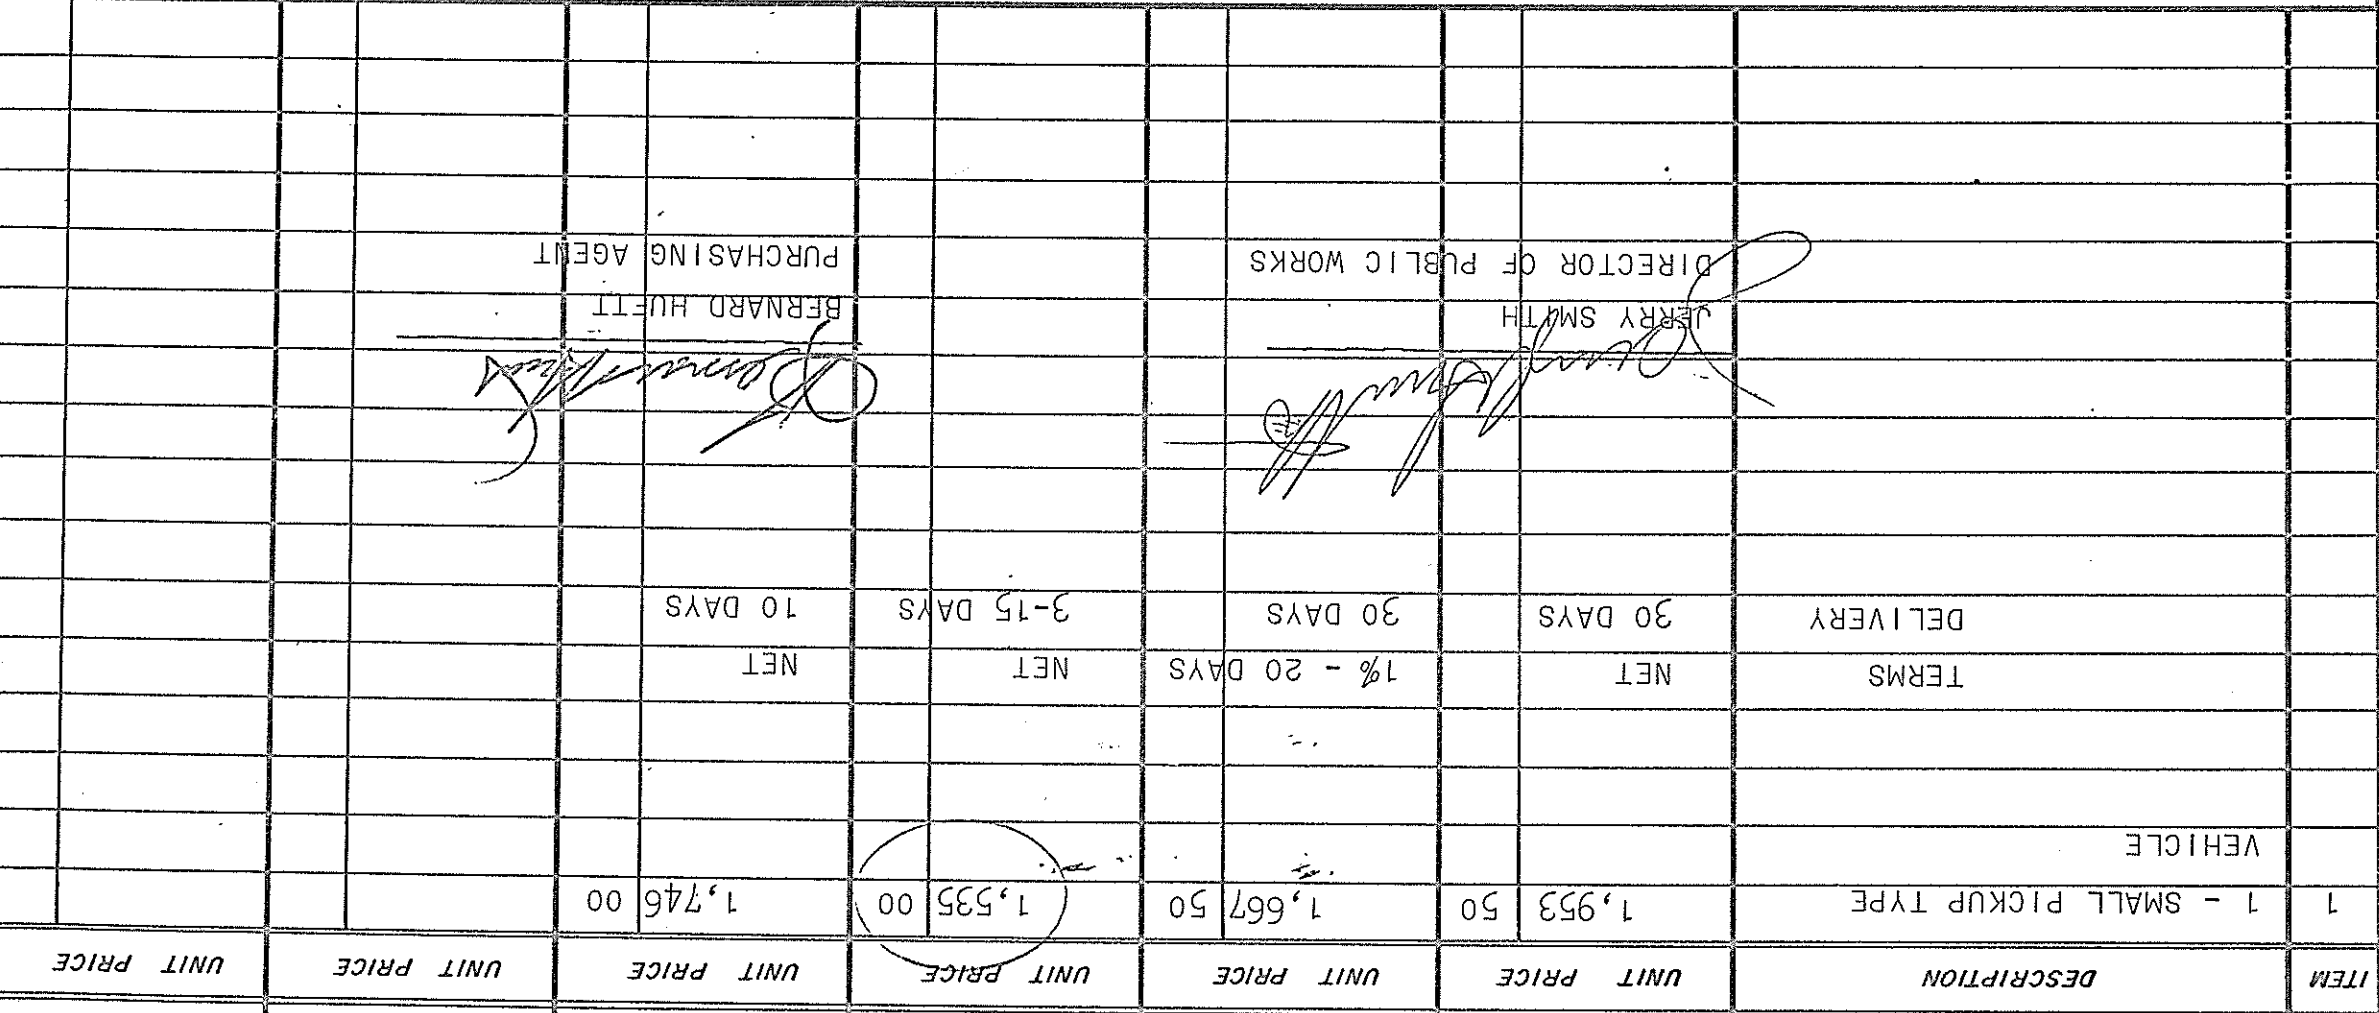 ITEM DESCRIPTION UNIT PRICE UNIT PRICE UNIT PRICE UNIT PRICE UNIT PRICE UNIT PRICE
1 1 - SMALL PICKUP TYPE 1,953 50 1,667 50 1,535 00 1,746 00
VEHICLE
TERMS NET 1% - 20 DAYS NET NET
DELIVERY 30 DAYS 30 DAYS 3-15 DAYS 10 DAYS
JERRY SMITH BERNARD HUFTT
DIRECTOR OF PUBLIC WORKS PURCHASING AGENT